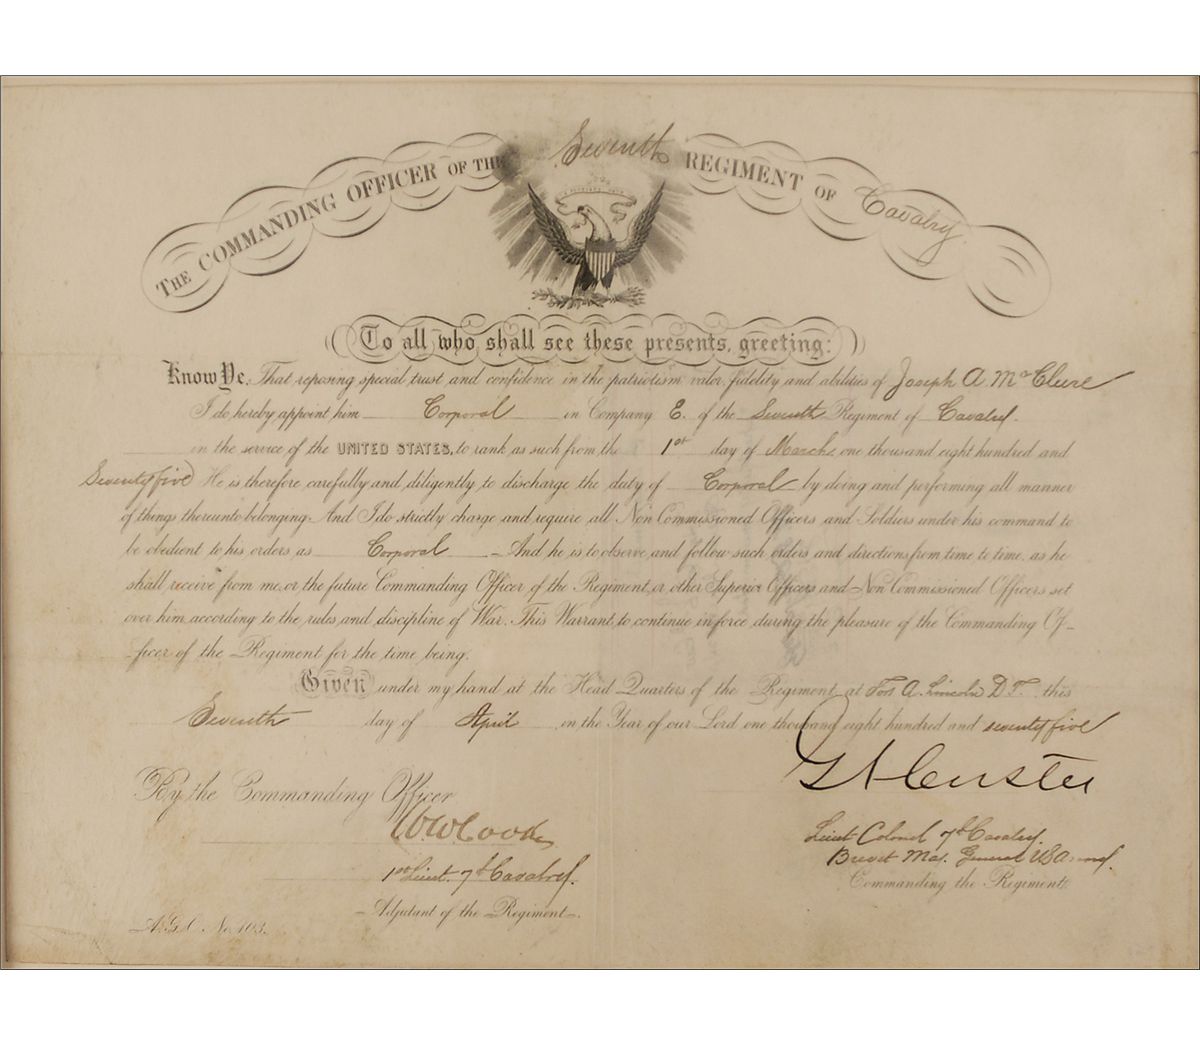 THE COMMANDING OFFICER OF THE Seventh REGIMENT OF Cavalry
To all who shall see these presents, greeting:
Know Ye, That reposing special trust and confidence in the patriotism valor, fidelity and abilities of Joseph A McClure
I do hereby appoint him Corporal in Company E. of the Seventh Regiment of Cavalry.
in the service of the UNITED STATES, to rank as such from the 1st day of March, one thousand eight hundred and
Seventy five He is therefore carefully and diligently to discharge the duty of Corporal by doing and performing all manner
of things thereunto belonging. And I do strictly charge and require all Non Commissioned Officers and Soldiers under his command to
be obedient to his orders as Corporal And he is to observe and follow such orders and directions from time to time, as he
shall receive from me, or the future Commanding Officer of the Regiment, or other Superior Officers and Non Commissioned Officers set
over him, according to the rules and discipline of War. This Warrant, to continue in force during the pleasure of the Commanding Of-
-ficer of the Regiment for the time being.
Given under my hand at the Head Quarters of the Regiment at Fort A. Lincoln D.T. this
Seventh day of April in the Year of our Lord one thousand eight hundred and seventy five
GACuster
By the Commanding Officer
WWCooke
Lieut Colonel 7th Cavalry.
Brevet Maj. General U.S. Army.
1st Lieut. 7th Cavalry.
Commanding the Regiment.
-Adjutant of the Regiment-.
A.G.O. No. 103.